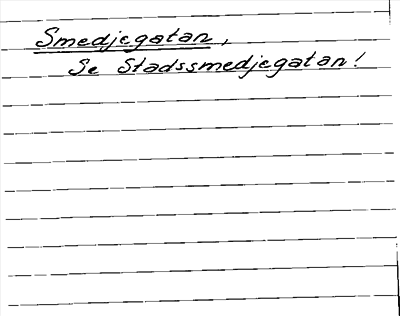 Smedjegatan,
Se Stadssmedjegatan!